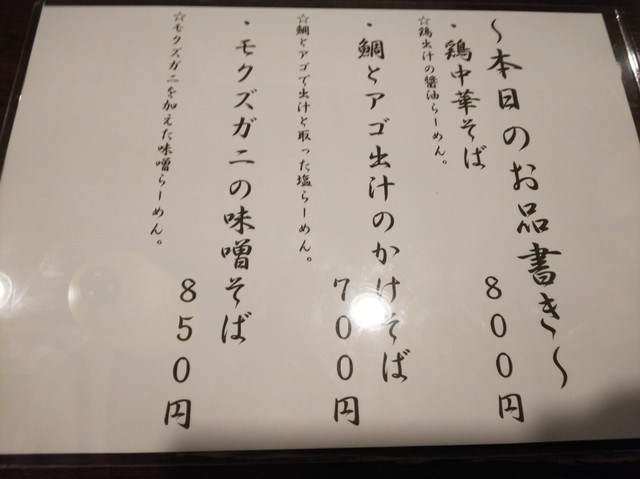 ～本日のお品書き～
・鶏中華そば
８００円
☆鶏出汁の醤油らーめん。
・鯛とアゴ出汁のかけそば
７００円
☆鯛とアゴで出汁と取った塩らーめん。
・モクズガニの味噌そば
８５０円
☆モクズガニを加えた味噌らーめん。